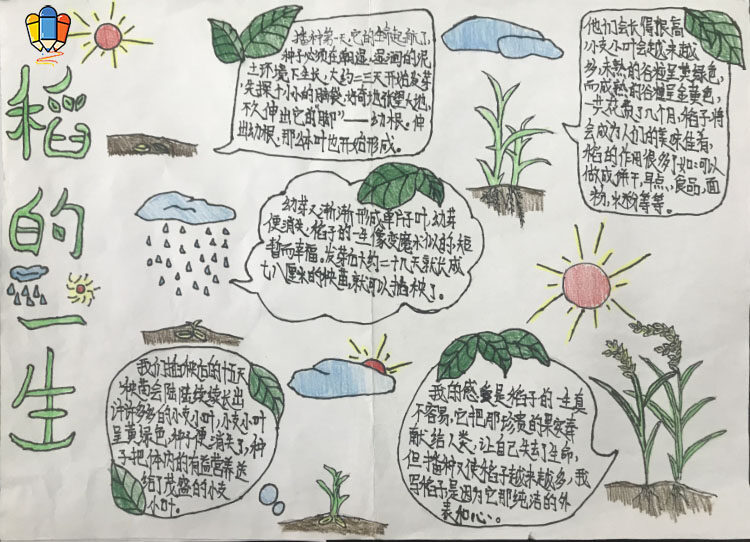 稻的一生
播种第一天，它的生命起航了，
种子必须在潮湿、温润的泥
土环境下生长，大约二三天开始发芽
先探个小小的脑袋，好奇地张望大地，
不久伸出它的"脚"——幼根。伸
出幼根，那么休叶也开始形成。
他们会长得很高，
小支小叶会越来越
多，未熟的谷粒呈黄绿色，
而成熟的谷粒呈金黄色，
一共花费了几个月，稻子将
会成为人们的美味佳肴，
稻的作用很多，如：可以
做成饼干，早点、食品，面
粉，米粉等等。
幼芽又渐渐形成单片子叶，幼芽
便消失，稻子的一生像变魔术似的，短
暂而幸福。发芽后大约二十几天就长成
七八厘米的秧苗，就可以插秧了。
我们插秧后的十五天
秧苗会陆陆续续长出
许许多多的小支小叶，小支小叶
呈黄绿色，种子便消失了，种
子把体内的有益营养送
给了茂盛的小支
小叶。
我的感觉是稻子的一生真
不容易，它把那珍贵的果实奉
献给人类，让自己失去了生命，
但播种又使稻子越来越多，我
写稻子是因为它那纯洁的外
表和心。